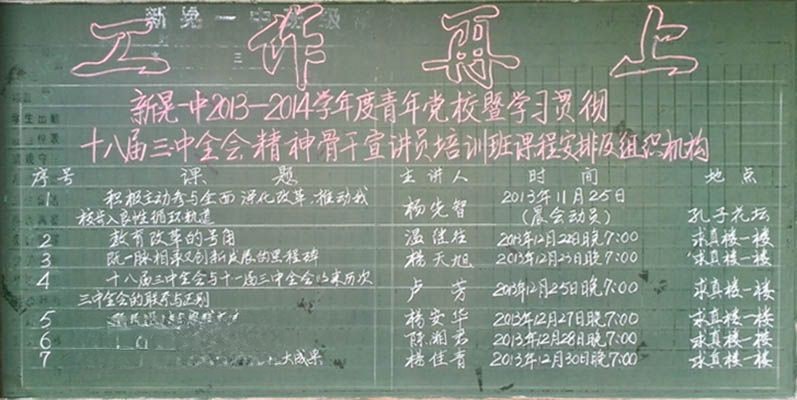 新晃一中班级
工作再上
新晃一中2013—2014学年度青年党校暨学习贯彻
十八届三中全会精神骨干宣讲员培训班课程安排及组织机构
序号 课题 主讲人 时间 地点
1 积极主动参与全面深化改革,推动我 杨先智 2013年11月25日
校步入良性循环轨道 (晨会动员) 孔子花坛
2 教育改革的号角 温 2013年12月22日晚7:00 求真楼一楼
3 既一脉相承又创新发展的里程碑 杨天旭 2013年12月23日晚7:00 求真楼一楼
4 十八届三中全会与十一届三中全会以来历次 卢芳 2013年12月25日晚7:00 求真楼一楼
三中全会的联系与区别
5 杨安华 2013年12月27日晚7:00 求真楼一楼
6 陈湘君 2013年12月28日晚7:00 求真楼一楼
7 大成果 杨佳青 2013年12月30日晚7:00 求真楼一楼